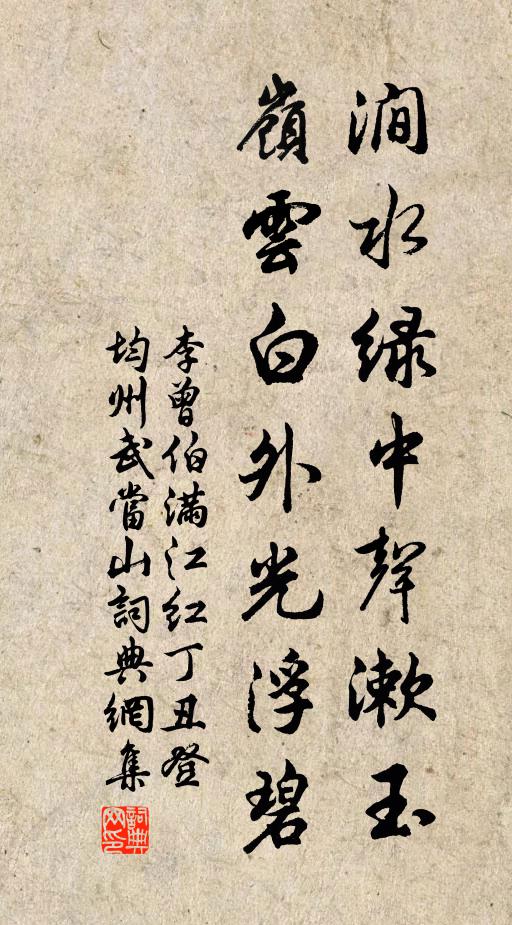 澗水緑中聲漱玉
嶺雲白外光浮碧
李曾伯满江红丁丑登
均州武當山詞典網集
詞典網印